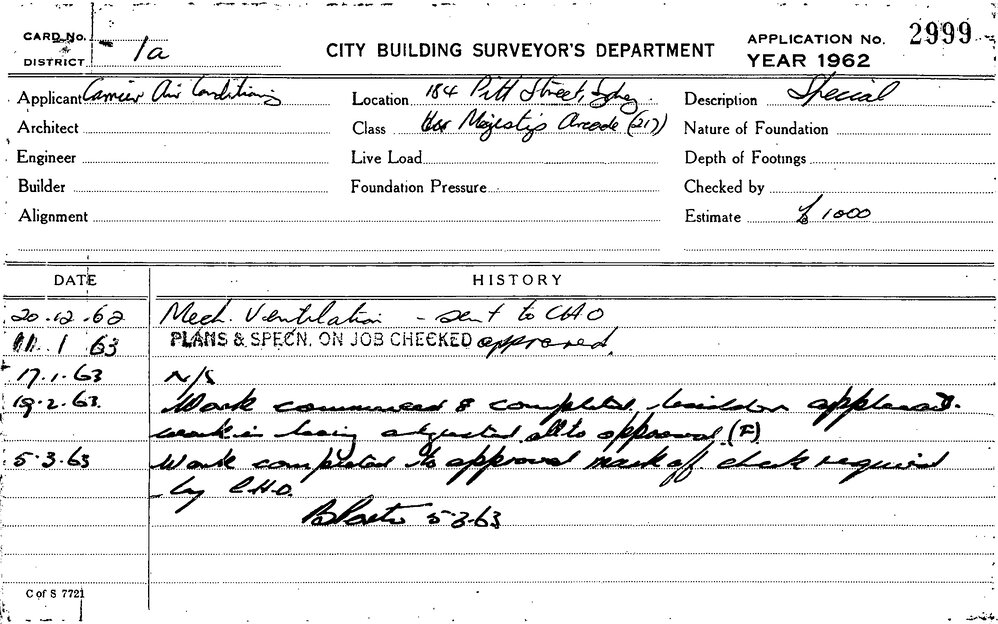 CARD No.
DISTRICT 1a
CITY BUILDING SURVEYOR'S DEPARTMENT
APPLICATION No. 2999
YEAR 1962
Applicant Carrier Air Conditioning
Location 184 Pitt Street, Sydney
Description Special
Architect
Class Her Majestys Arcade (217)
Nature of Foundation
Engineer
Live Load
Depth of Footings
Builder
Foundation Pressure
Checked by
Alignment
Estimate £1000
DATE HISTORY
20.12.62 Mech. Ventilation - sent to CHO
11.1 63 PLANS & SPECN. ON JOB CHECKED approved.
17.1.63 N/S
19.2.63. Work commenced & completed,
work is being adjusted all to approval (F)
5.3.63 Work completed to approval mark off. check required
by C.H.O.
5.3.63
C of S 7721